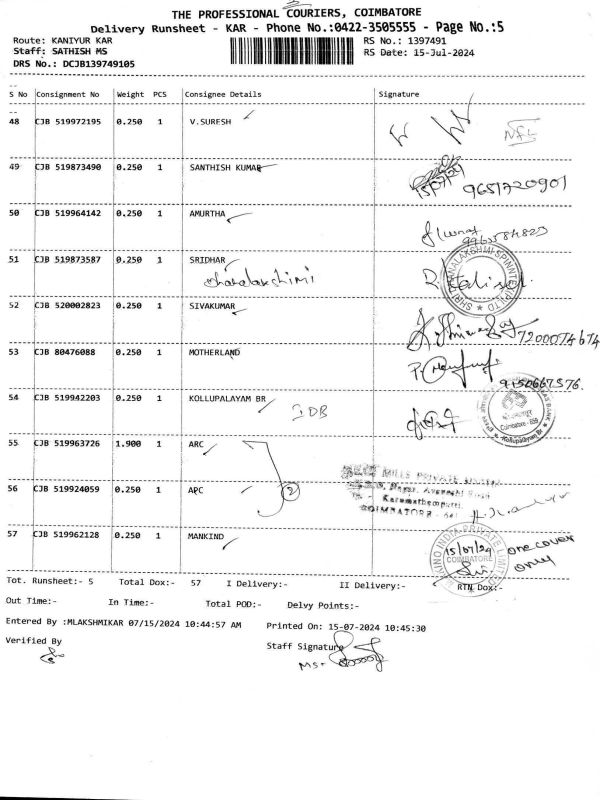 THE PROFESSIONAL COURIERS, COIMBATORE
Delivery Runsheet - KAR - Phone No.:0422-3505555 - Page No.:5
Route: KANIYUR KAR RS No.: 1397491
Staff: SATHISH MS RS Date: 15-Jul-2024
DRS No.: DCJB139749105
S No Consignment No Weight PCS Consignee Details Signature
48 CJB 519972195 0.250 1 V.SURESH
49 CJB 519873490 0.250 1 SANTHISH KUMAR
15/07/24 9651720901
50 CJB 519964142 0.250 1 AMURTHA
51 CJB 519873587 0.250 1 SRIDHAR
52 CJB 520002823 0.250 1 SIVAKUMAR
7200074674
53 CJB 80476088 0.250 1 MOTHERLAND
9150667576
54 CJB 519942203 0.250 1 KOLLUPALAYAM BR
IDB
55 CJB 519963726 1.900 1 ARC
MILLS PRIVATE LIMITED
56 CJB 519924059 0.250 1 APC 2
Karumathampatti,
COIMBATORE - 641
57 CJB 519962128 0.250 1 MANKIND
15/07/24 one cover
COIMBATORE only
Tot. Runsheet:- 5 Total Dox:- 57 I Delivery:- II Delivery:- RTN Dox:-
Out Time:- In Time:- Total POD:- Delvy Points:-
Entered By :MLAKSHMIKAR 07/15/2024 10:44:57 AM Printed On: 15-07-2024 10:45:30
Verified By Staff Signature